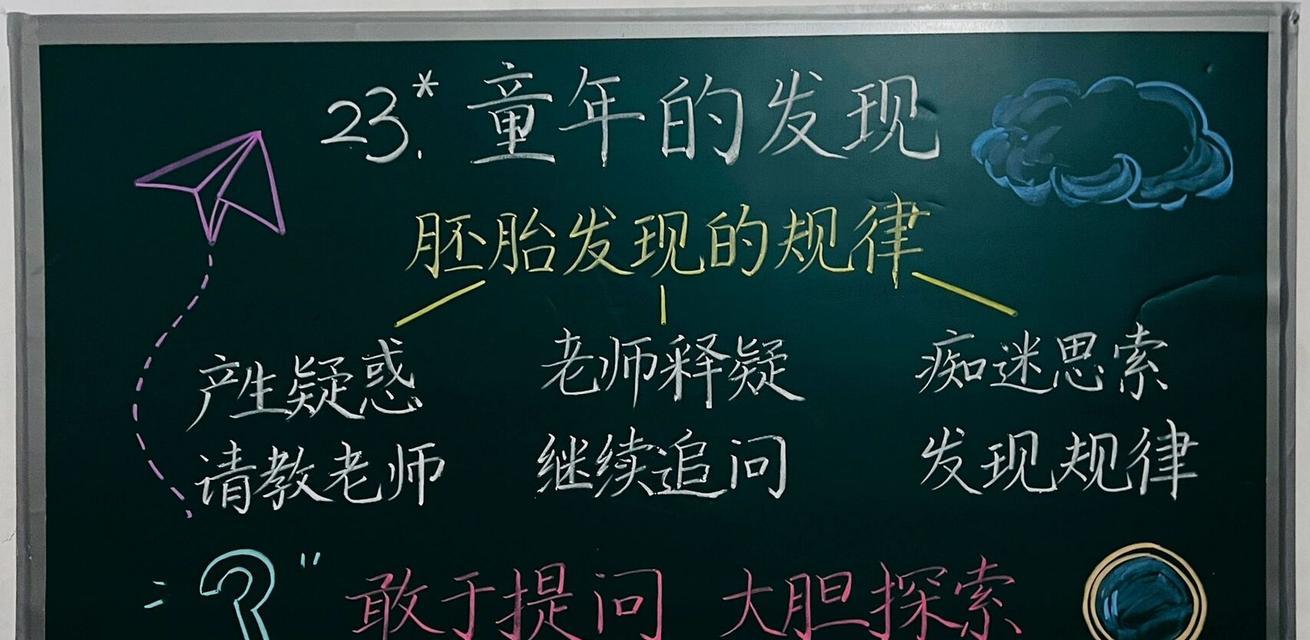 23.* 童年的发现
胚胎发现的规律
产生疑惑 老师释疑 痴迷思索
请教老师 继续追问 发现规律
? 敢于提问 大胆探索